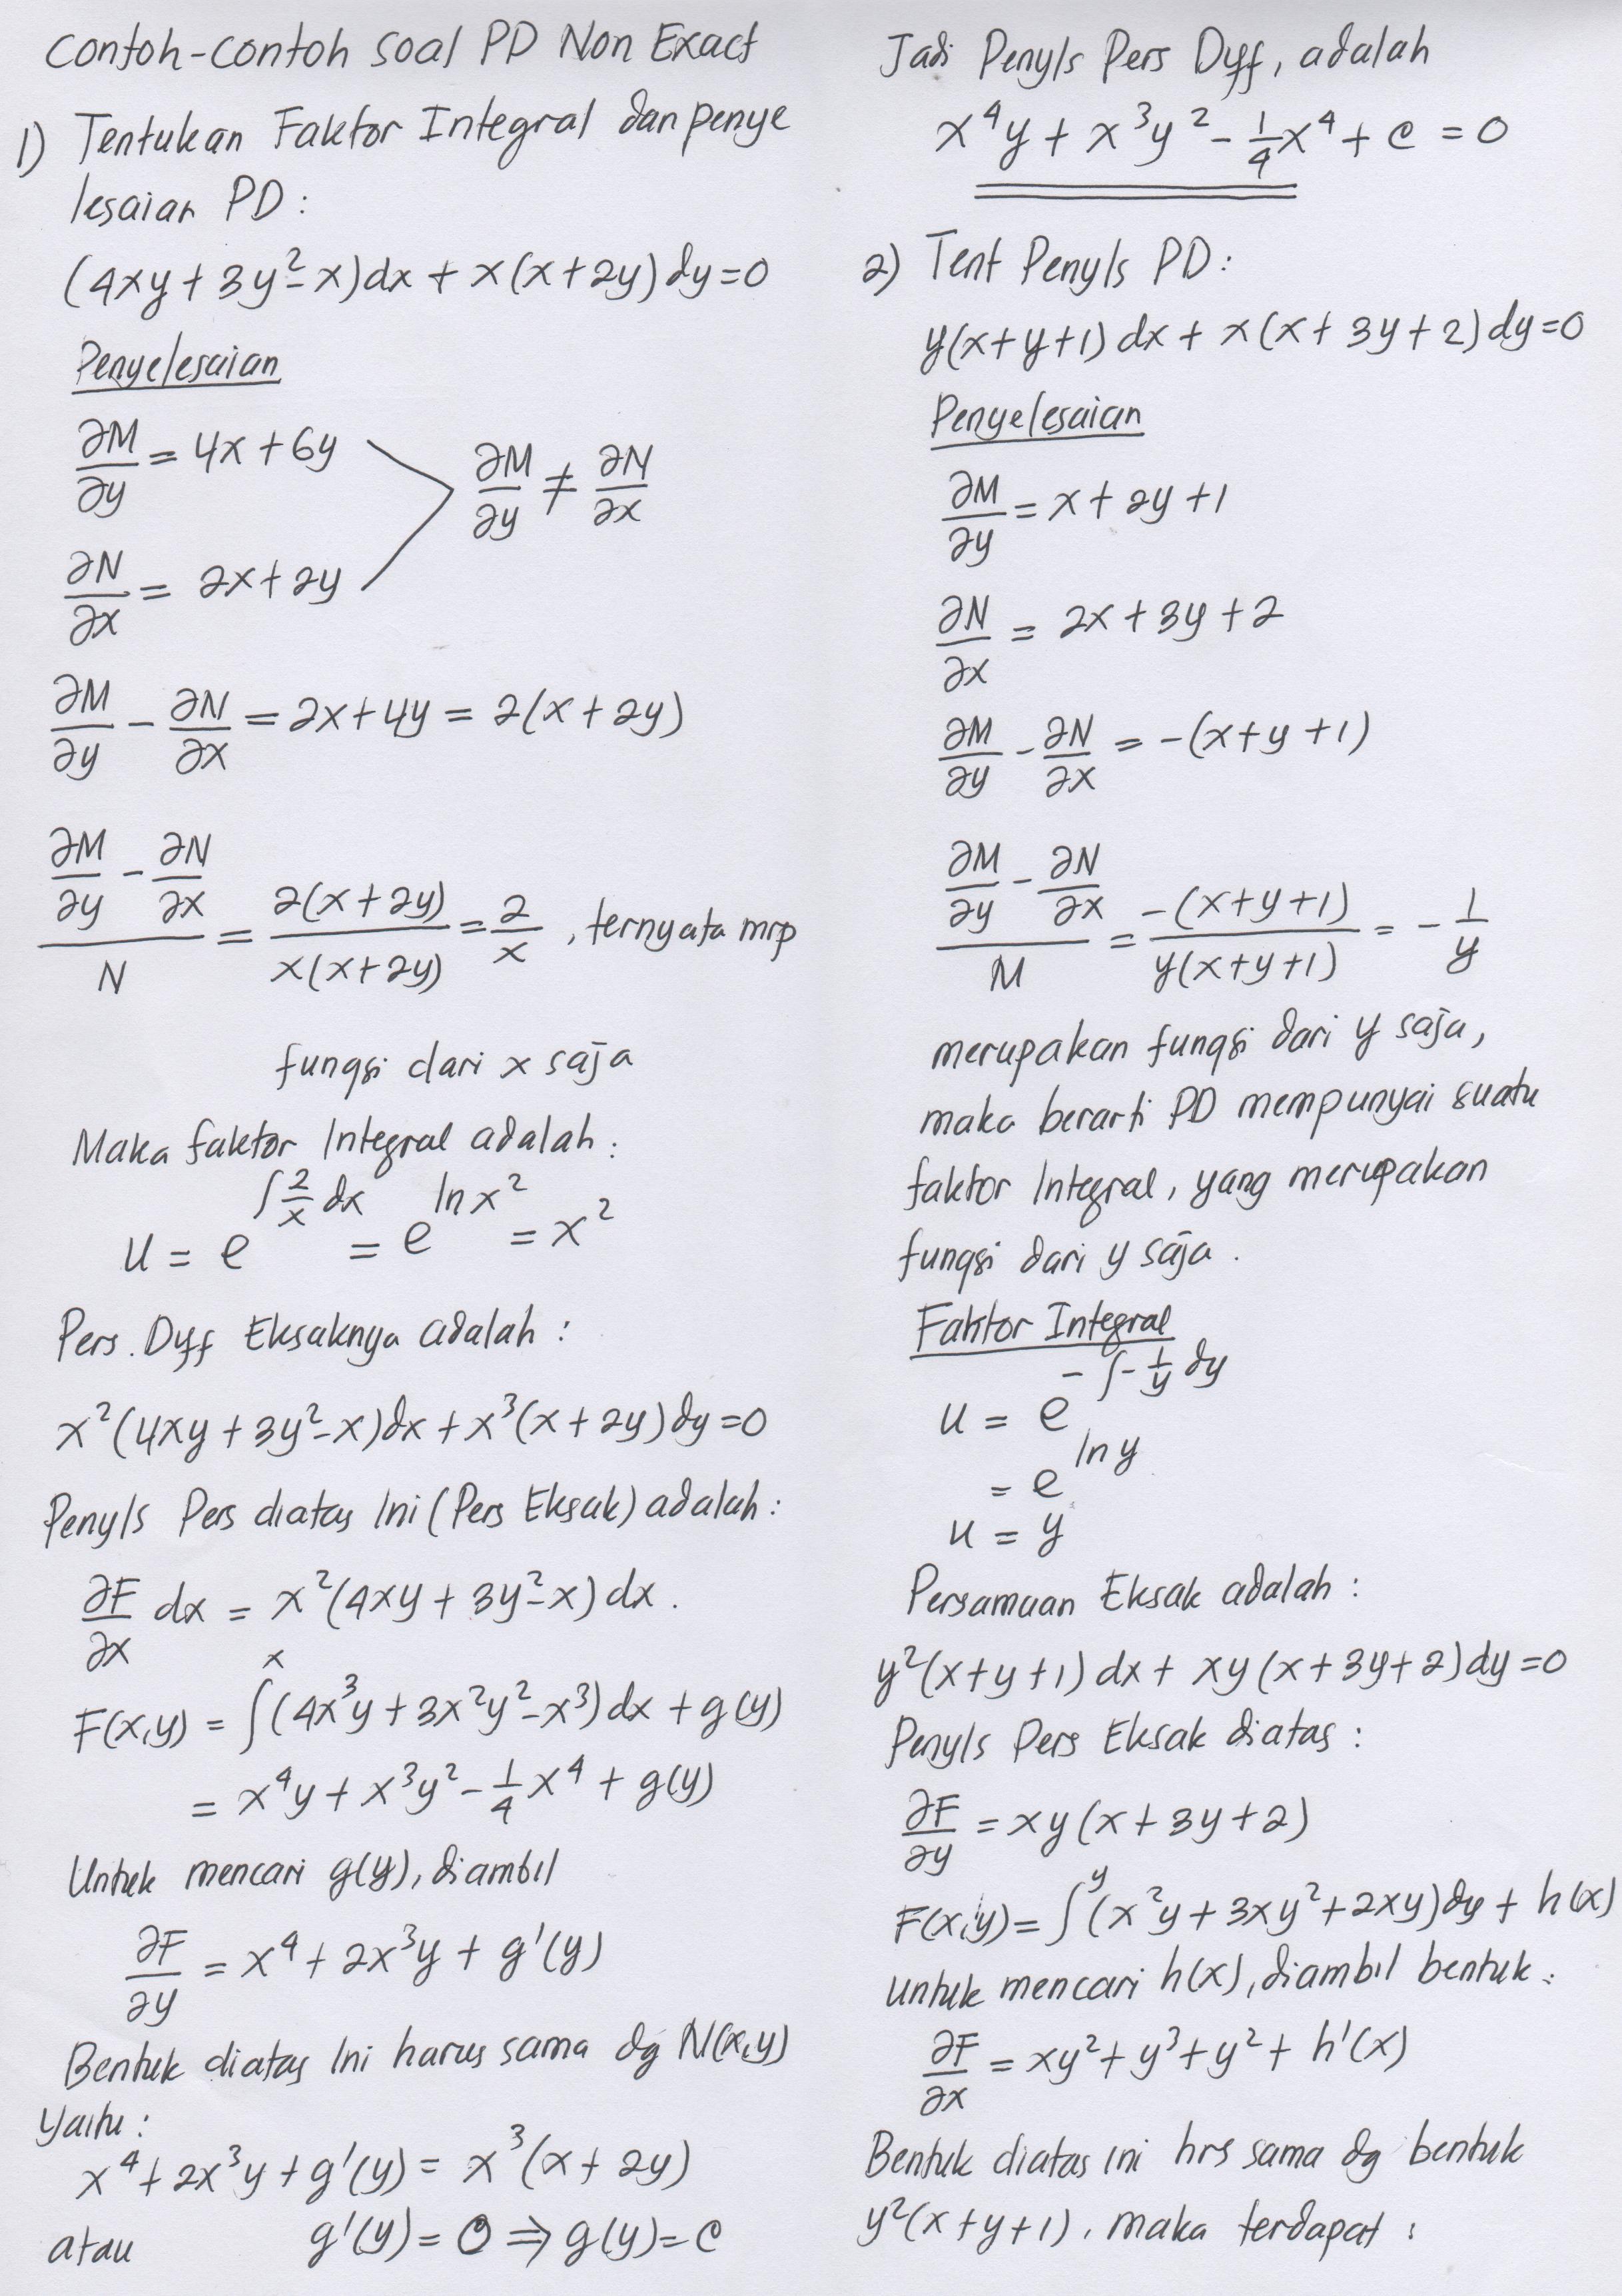 Contoh-contoh soal PD Non Exact
1) Tentukan Faktor Integral dan penye
lesaian PD:
(4xy + 3y² - x)dx + x(x+2y)dy=0
Penyelesaian
∂M/∂y = 4x + 6y
∂M/∂y ≠ ∂N/∂x
∂N/∂x = 2x + 2y
∂M/∂y - ∂N/∂x = 2x+4y = 2(x+2y)
(∂M/∂y - ∂N/∂x)/N = 2(x+2y)/x(x+2y) = 2/x , ternyata mrp
fungsi dari x saja
Maka faktor Integral adalah:
u = e^∫2/x dx = e^ln x² = x²
Pers. Dyff Eksaknya adalah :
x²(4xy + 3y² - x)dx + x³(x+2y)dy=0
Penyls Pers diatas Ini (Pers Eksak) adalah :
∂F/∂x dx = x²(4xy + 3y² - x) dx.
F(x,y) = ∫^x (4x³y + 3x²y² - x³) dx + g(y)
= x⁴y + x³y² - 1/4 x⁴ + g(y)
Untuk mencari g(y), diambil
∂F/∂y = x⁴ + 2x³y + g'(y)
Bentuk diatas Ini harus sama dg N(x,y)
Yaitu :
x⁴ + 2x³y + g'(y) = x³(x + 2y)
atau g'(y) = 0 ⇒ g(y) = c
Jadi Penyls Pers Dyff, adalah
x⁴y + x³y² - 1/4 x⁴ + c = 0
2) Tent Penyls PD :
y(x+y+1) dx + x(x+3y+2) dy=0
Penyelesaian
∂M/∂y = x + 2y + 1
∂N/∂x = 2x + 3y + 2
∂M/∂y - ∂N/∂x = -(x+y+1)
(∂M/∂y - ∂N/∂x)/M = -(x+y+1)/y(x+y+1) = - 1/y
merupakan fungsi dari y saja,
maka berarti PD mempunyai suatu
faktor Integral, yang merupakan
fungsi dari y saja.
Faktor Integral
u = e^-∫-1/y dy
= e^ln y
u = y
Persamaan Eksak adalah :
y²(x+y+1) dx + xy(x+3y+2)dy=0
Penyls Pers Eksak diatas :
∂F/∂y = xy(x + 3y + 2)
F(x,y) = ∫^y (x²y + 3xy² + 2xy)dy + h(x)
Untuk mencari h(x), diambil bentuk :
∂F/∂x = xy² + y³ + y² + h'(x)
Bentuk diatas ini hrs sama dg bentuk
y²(x+y+1). maka terdapat :